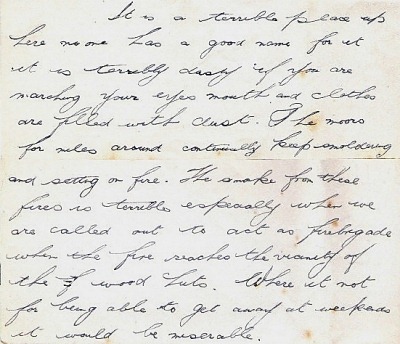 It is a terrible place up
here no one has a good name for it
it is terribly dusty if you are
marching your eyes mouth and clothes
are filled with dust. The moors
for miles around continually keep smoldering
and setting on fire. The smoke from these
fires is terrible especially when we
are called out to act as firebrigade
when the fire reaches the vicinity of
the wood huts. Where it not
for being able to get away at weekends
it would be miserable.